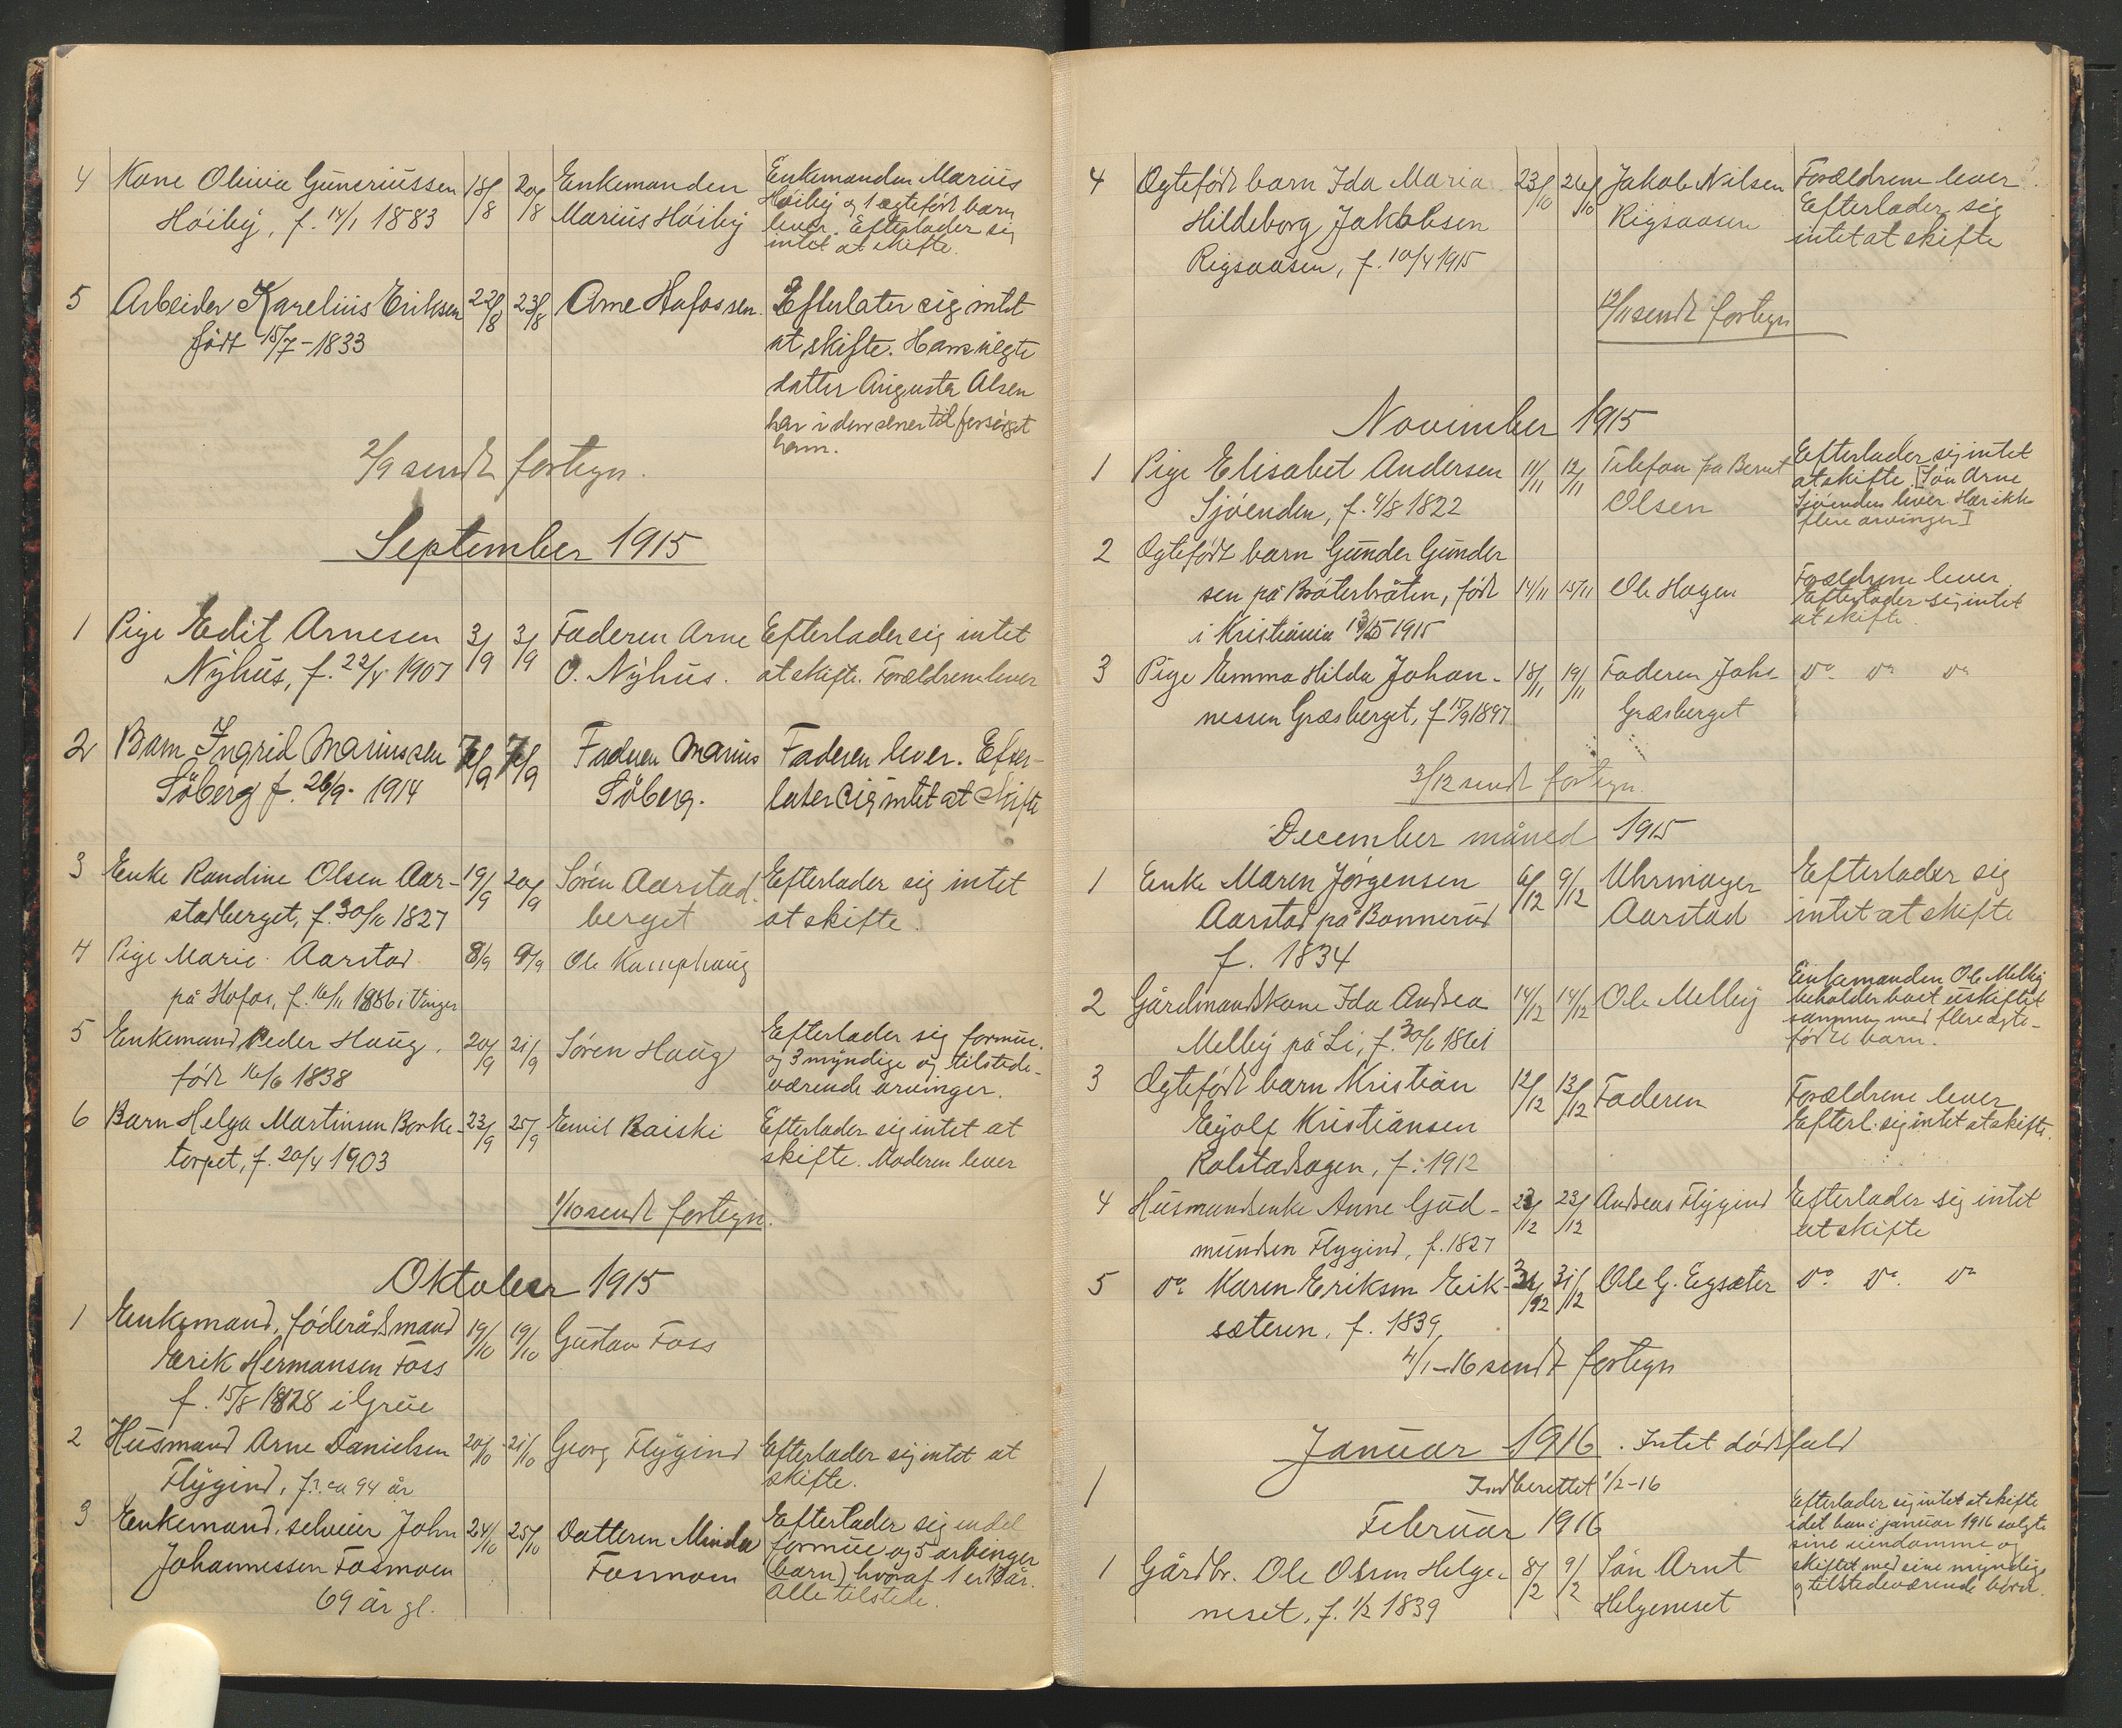 4 Kone Olivia Guneriussen 18/8 20/8 Enkemanden Enkemanden Marius
Høiby, f. 14/1 1883 Marius Høiby Høiby og 1 ægtefødt barn
lever. Efterlader sig
intet at skifte.
5 Arbeider Karelius Eriksen 22/8 23/8 Arne Hafossen. Efterlater sig intet
født 15/7-1833 at skifte. Hans uegte
datter Augusta Olsen
har i den senere tid forsørget
ham.
2/9 sendt fortegn.
September 1915
1 Pige Edit Arnesen 3/9 3/9 Faderen Arne Efterlader sig intet
Nyhus, f. 22/4 1907 O. Nyhus. at skifte. Forældrene lever
2 Barn Ingrid Mariussen 7/9 7/9 Faderen Marius Faderen lever. Efter-
Søberg f. 26/9- 1914 Søberg. later sig intet at skifte
3 Enke Randine Olsen Aar- 19/9 20/9 Søren Aarstad Efterlader sig intet
stadberget, f. 30/10 1827 berget at skifte.
4 Pige Marie Aarstad 8/9 9/9 Ole Kamphaug
på Hofos, f. 16/11 1886 i Vinger
5 Enkemand Peder Haug, 20/9 21/9 Søren Haug Efterlader sig formue.
født 16/6 1838 og 3 myndige og tilstede-
værende arvinger.
6 Barn Helga Martinsen Borke- 23/9 25/9 Emil Raiski Efterlader sig intet at
torpet, f. 20/4 1903 skifte. Moderen lever
1/10 sendt fortegn.
Oktober 1915
1 Enkemand, føderådsmand 19/10 19/10 Gustav Foss
Erik Hermansen Foss
f. 15/8 1828 i Grue
2 Husmand Arne Danielsen 20/10 21/10 Georg Flygind Efterlader sig intet at
Flygind, f. ca 94 år skifte.
3 Enkemand, selveier John 24/10 25/10 Datteren Minda Efterlader sig endel
Johannessen Fosmoen Fosmoen formue og 5 arvinger
69 år gl. (barn) hvoraf 1 er 13 år.
Alle tilstede.
4 Ægtefødt barn Ida Maria 23/10 26/10 Jakob Nilsen Forældrene lever.
Hildeborg Jakobsen Rigsaasen Efterlader sig
Rigsaasen, f. 10/4 1915 intet at skifte
12/11 sendt fortegn
November 1915
1 Pige Elisabet Andersen 11/11 12/11 Telefon fra Bernt Efterlader sig intet
Sjøenden, f. 4/8 1822 Olsen at skifte [Søn Arne
Sjøenden lever. Har ikke
flere arvinger]
2 Ægtefødt barn Gunder Gunder
sen på Bråterbråten, født 14/11 15/11 Ole Hagen Forældrene lever
i Kristiania 1915 Efterlader sig intet
at skifte.
3 Pige Emma Hilda Johan- 18/11 19/11 Faderen Johs Do. Do Do
nessen Græsberget, f 17/9 1897 Græsberget
3/12 sendt fortegn.
December måned 1915
1 Enke Maren Jørgensen 6/12 9/12 Uhrmager Efterlader sig
Aarstad på Bonnerud Aarstad intet at skifte
f. 1834
2 Gårdmandskone Ida Andrea 14/12 14/12 Ole Melby Enkemanden Ole Melby
Melby på Li, f. 30/6 1861 beholder boet uskiftet
sammen med flere ægte-
fødte barn.
3 Ægtefødt barn Kristian 12/12 13/12 Faderen Forældrene lever
Eyolf Kristiansen Efterl. sig intet at skifte.
Rolstadsagen, f. 1912
4 Husmandsenke Anne Gud- 23/12 23/12 Andreas Flygind Efterlader sig intet
mundsen Flygind, f. 1827 at skifte
5 Do Karen Eriksen Eik- 31/12 31/12 Ole G. Egsæter Do. Do. Do
sæteren, f. 1839
4/1-16 sendt fortegn
Januar 1916. Intet dødsfald
1 Indberettet 1/2-16
Februar 1916
1 Gårdbr. Ole Olsen Helge- 8/2 9/2 Søn Arnt Efterlader sig intet at skifte
neset, f. 1/2 1839 Helgeneset idet han i januar 1916 solgte
sine eiendomme og
skiftet med sine myndige
og tilstedeværende børn.